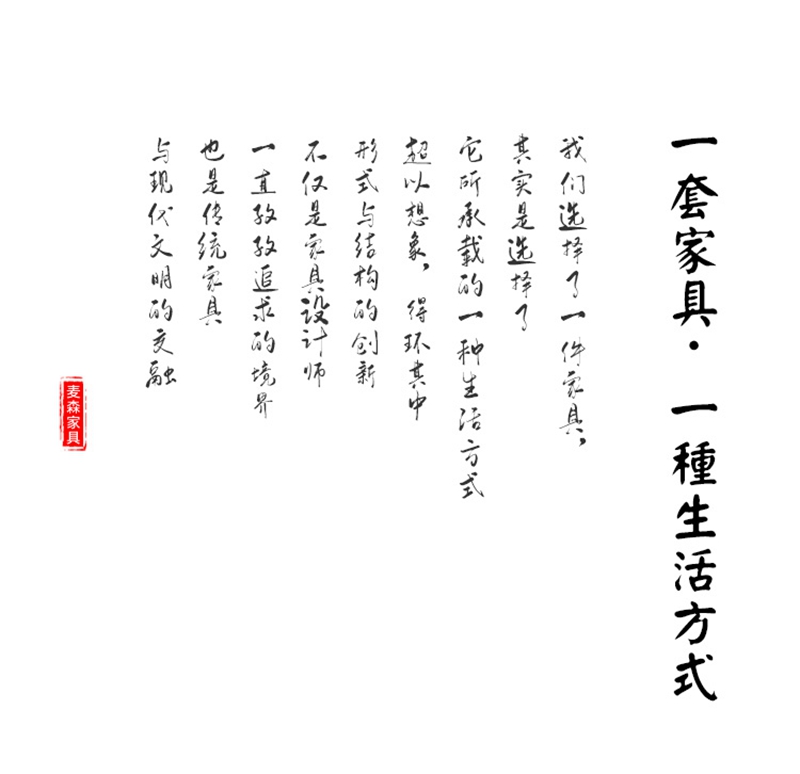 一套家具·一種生活方式
我们选择了一件家具,
其实是选择了
它所承载的一种生活方式
超以想象,得环其中
形式与结构的创新
不仅是家具设计师
一直孜孜追求的境界
也是传统家具
与现代文明的交融
麦森家具